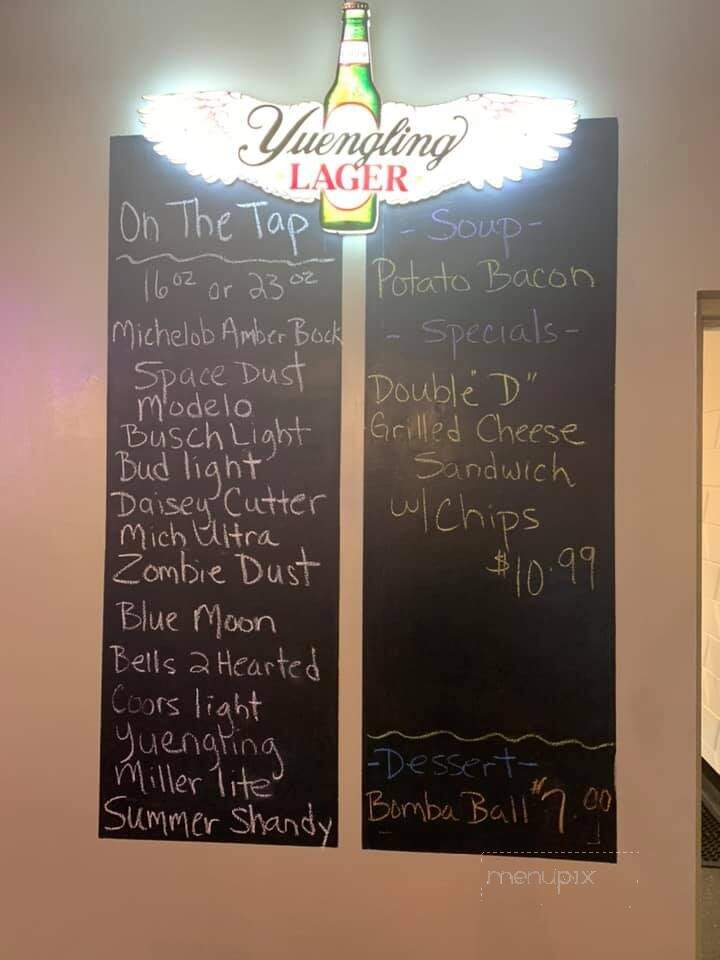 Yuengling
LAGER
On The Tap
16oz or 23oz
Michelob Amber Bock
Space Dust
Modelo
Busch Light
Bud light
Daisey Cutter
Mich Ultra
Zombie Dust
Blue Moon
Bells 2 Hearted
Coors light
Yuengling
Miller lite
Summer Shandy
- Soup -
Potato Bacon
- Specials -
Double "D"
Grilled Cheese
Sandwich
w/ Chips
$10.99
- Dessert -
Bomba Ball $7.00
menupix